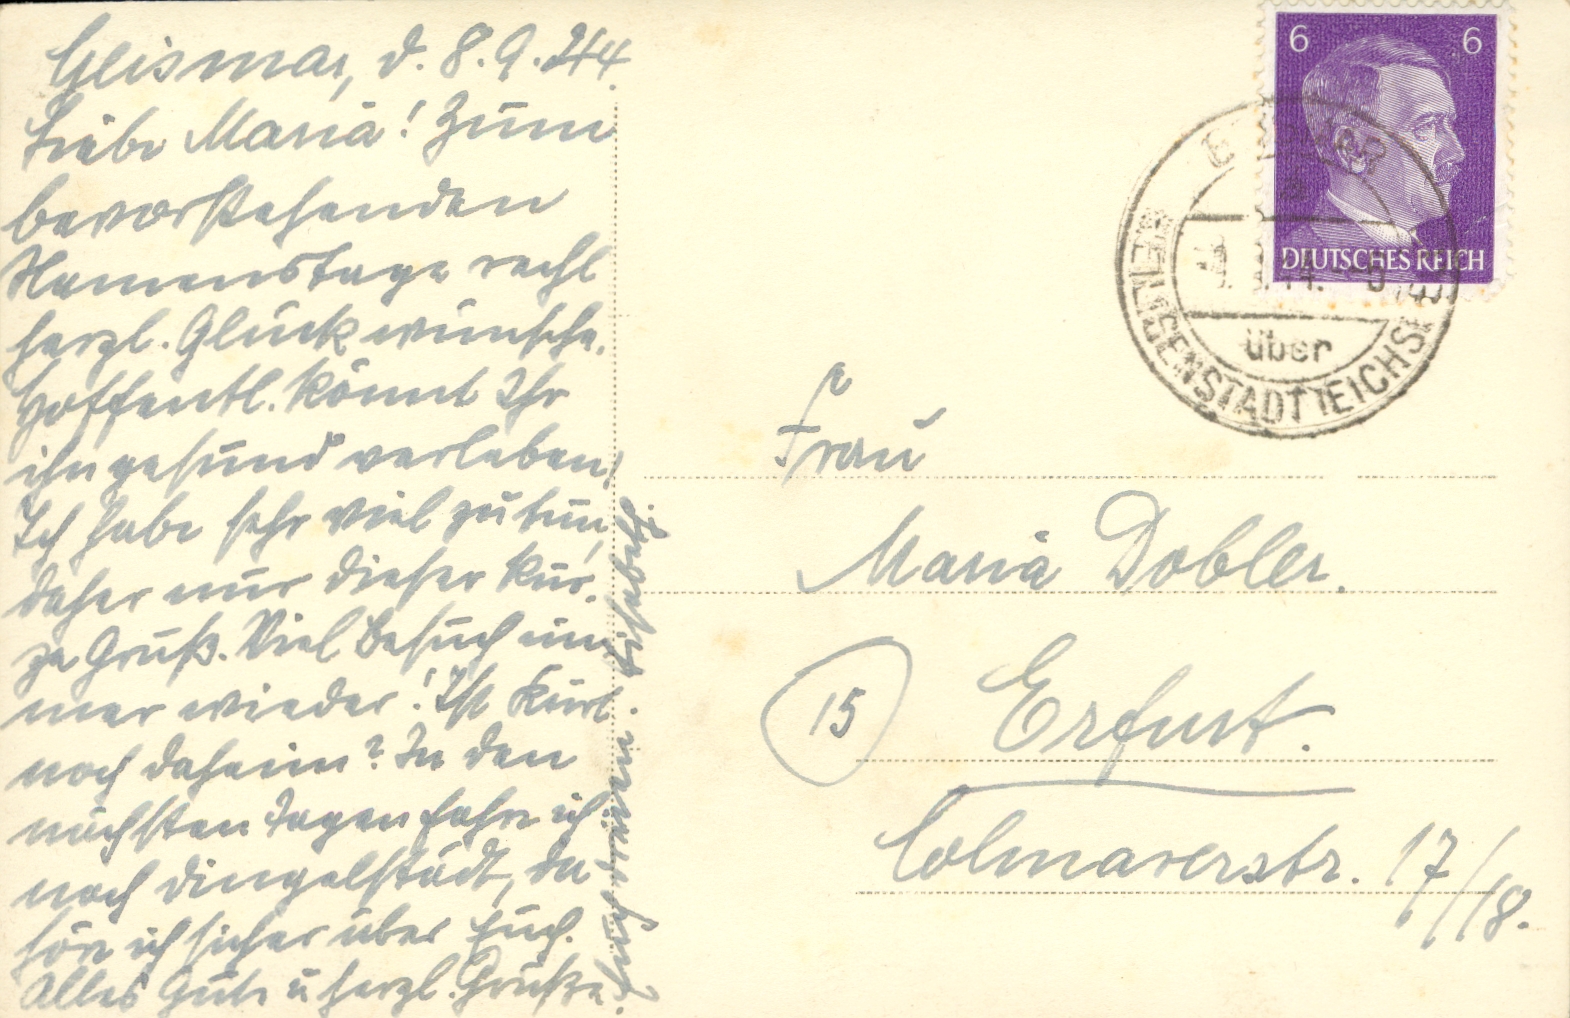 Geismar, d. 8.9.44.
Liebe Maria! Zum
bevorstehenden
Namenstage recht
herzl. Glückwünsche.
Hoffentl. könnt Ihr
ihn gesund verleben!
Ich habe sehr viel zu tun,
daher nur dieser kur-
ze Gruß. Viel Besuch im-
mer wieder! Ist Kurt
noch daheim? In den
nächsten Tagen fahre ich
nach Dingelstädt, da
höre ich sicher über Euch.
Alles Gute u herzl. Grüße
Euch Elisabeth.
6 6
DEUTSCHES REICH
über
HEILIGENSTADT (EICHSF
Frau
Maria Dobler.
15 Erfurt.
Colmarerstr. 17/18.